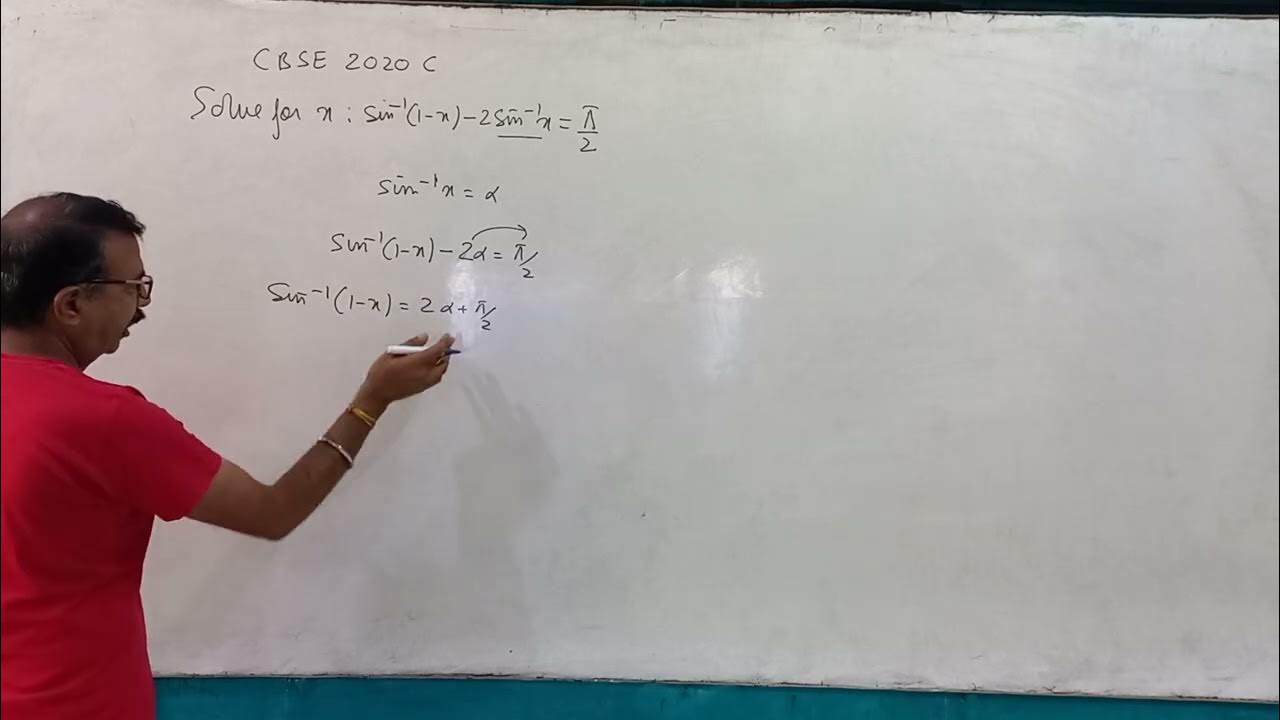 CBSE 2020 C
Solve for x : sin⁻¹(1-x)-2sin⁻¹x = π/2
sin⁻¹x = α
sin⁻¹(1-x) - 2α = π/2
sin⁻¹(1-x) = 2α + π/2